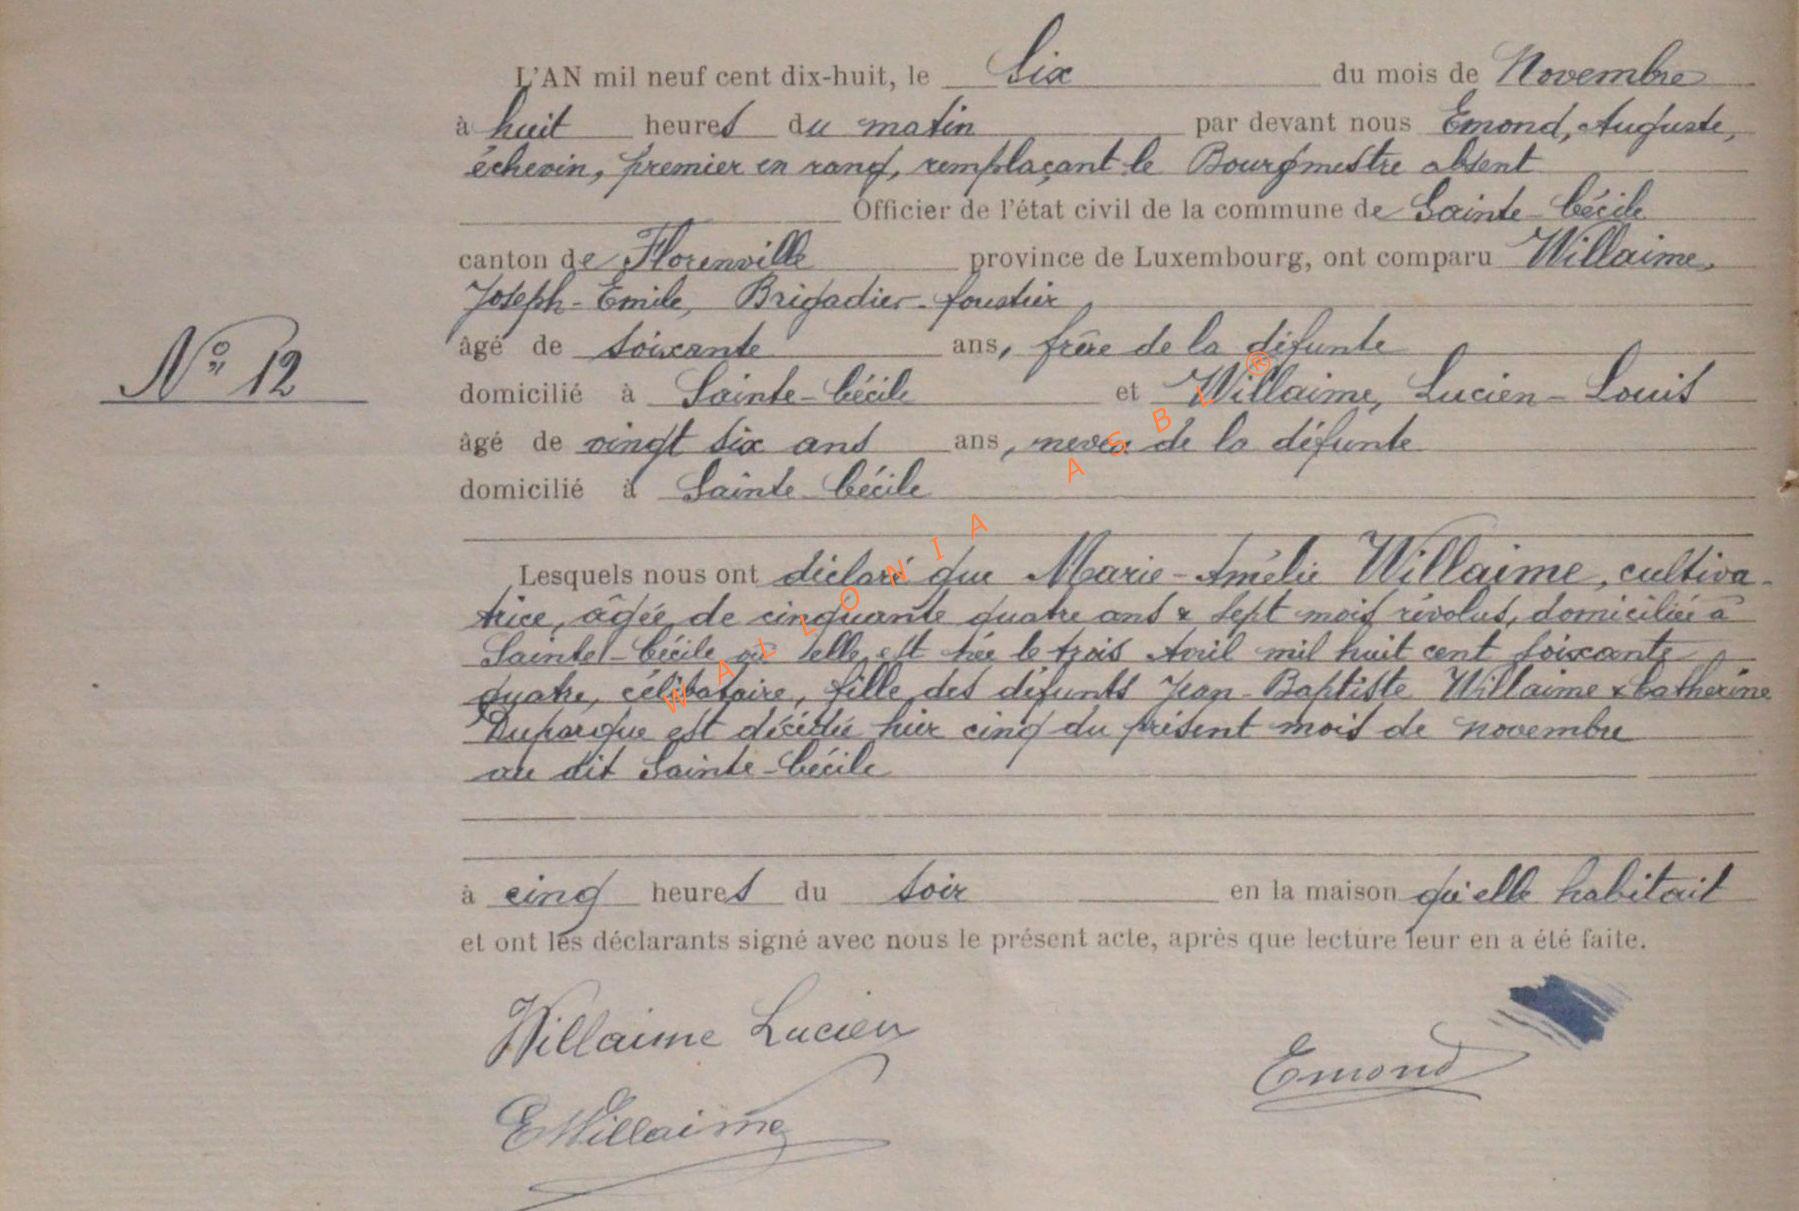 L'AN mil neuf cent dix-huit, le Six du mois de Novembre
à huit heures du matin par devant nous Emond, Auguste,
échevin, premier en rang, remplaçant le Bourgmestre absent
Officier de l'état civil de la commune de Sainte-Cécile
canton de Florenville province de Luxembourg, ont comparu Willaime,
Joseph-Emile, Brigadier-forestier,
âgé de soixante ans, frère de la défunte
N° 12
domicilié à Sainte-Cécile et Willaime, Lucien-Louis
âgé de vingt six ans ans, neveu de la défunte
domicilié à Sainte-Cécile
Lesquels nous ont déclaré que Marie-Amélie Willaime, cultiva-
trice, âgée de cinquante quatre ans & sept mois révolus, domiciliée à
Sainte-Cécile où elle est née le trois Avril mil huit cent soixante
quatre, célibataire, fille des défunts Jean-Baptiste Willaime & Catherine
Duparque est décédée hier cinq du présent mois de novembre
au dit Sainte-Cécile
à cinq heures du soir en la maison qu'elle habitait
et ont les déclarants signé avec nous le présent acte, après que lecture leur en a été faite.
Willaime Lucien
Emond
E Willaime
WALLONIA ASBL ®